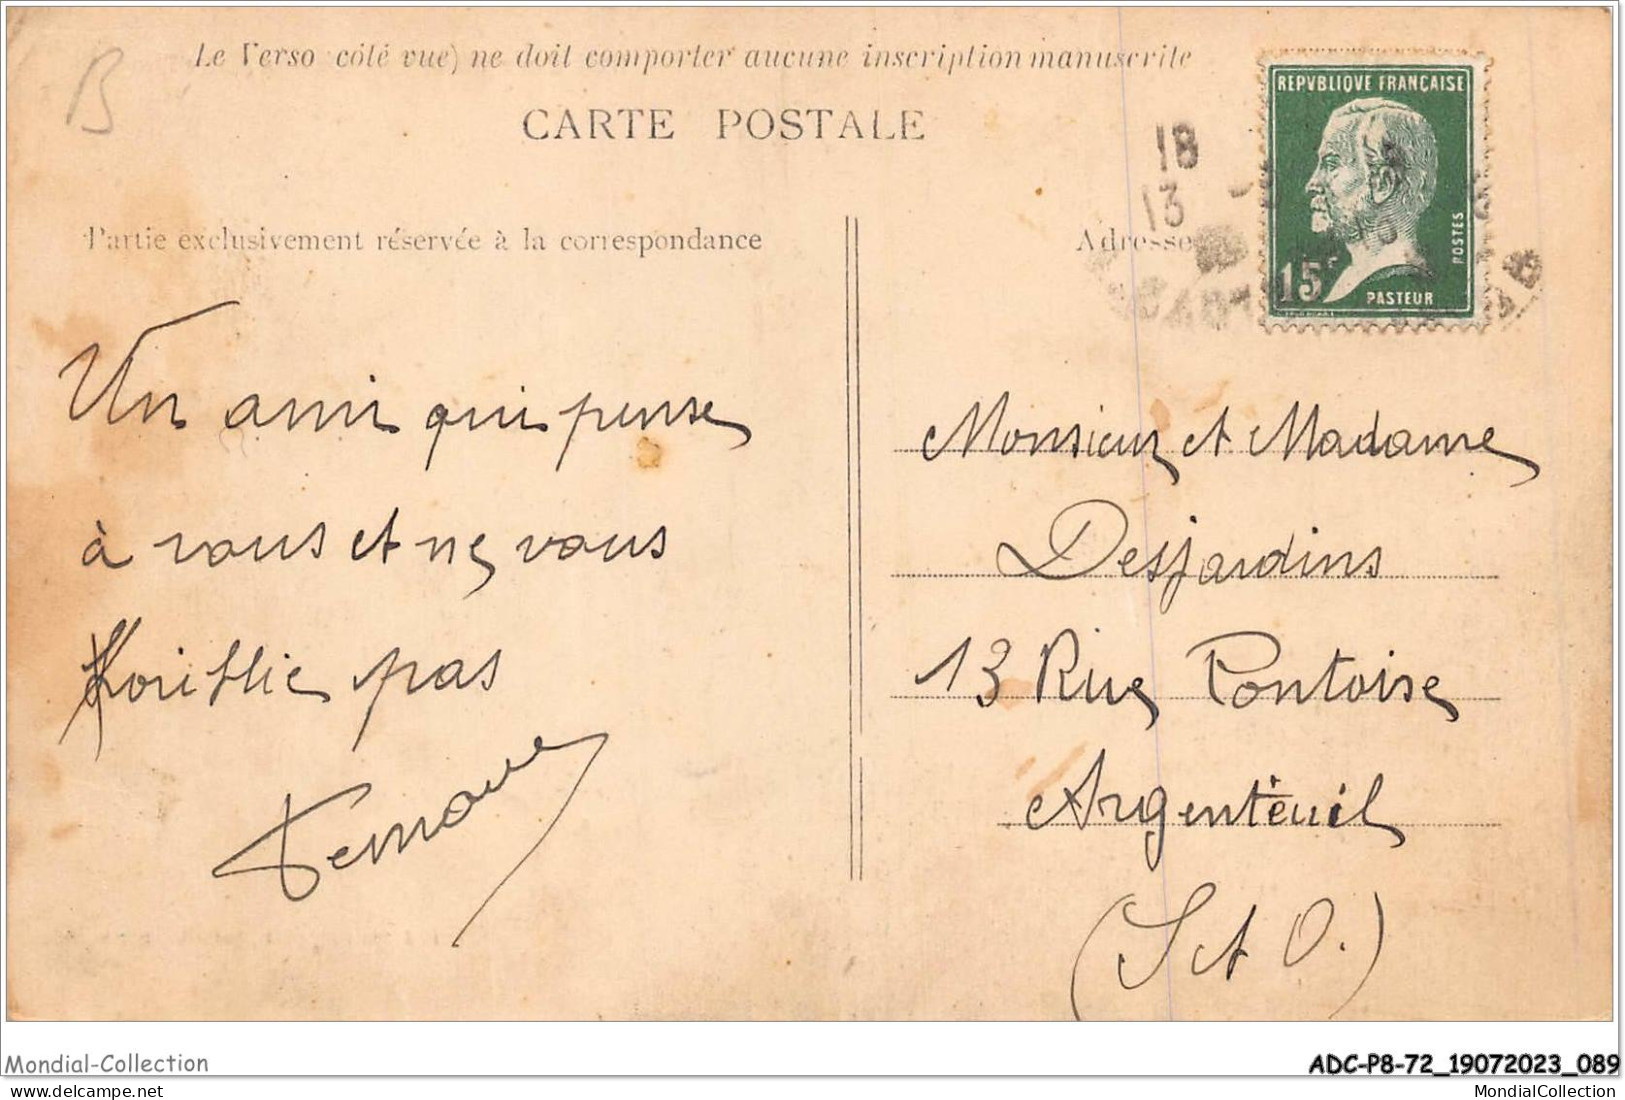 B
Le Verso côté vue) ne doit comporter aucune inscription manuscrite
CARTE POSTALE
REPVBLIQVE FRANÇAISE
15c
POSTES
PASTEUR
18
13
Partie exclusivement réservée à la correspondance
Adresse
Un ami qui pense
à vous et ne vous
pas
Monsieur et Madame
Desjardins
13 Rue Pontoise
Argenteuil
(S et O.)
Mondial-Collection
ADC-P8-72_19072023_089
MondialCollection